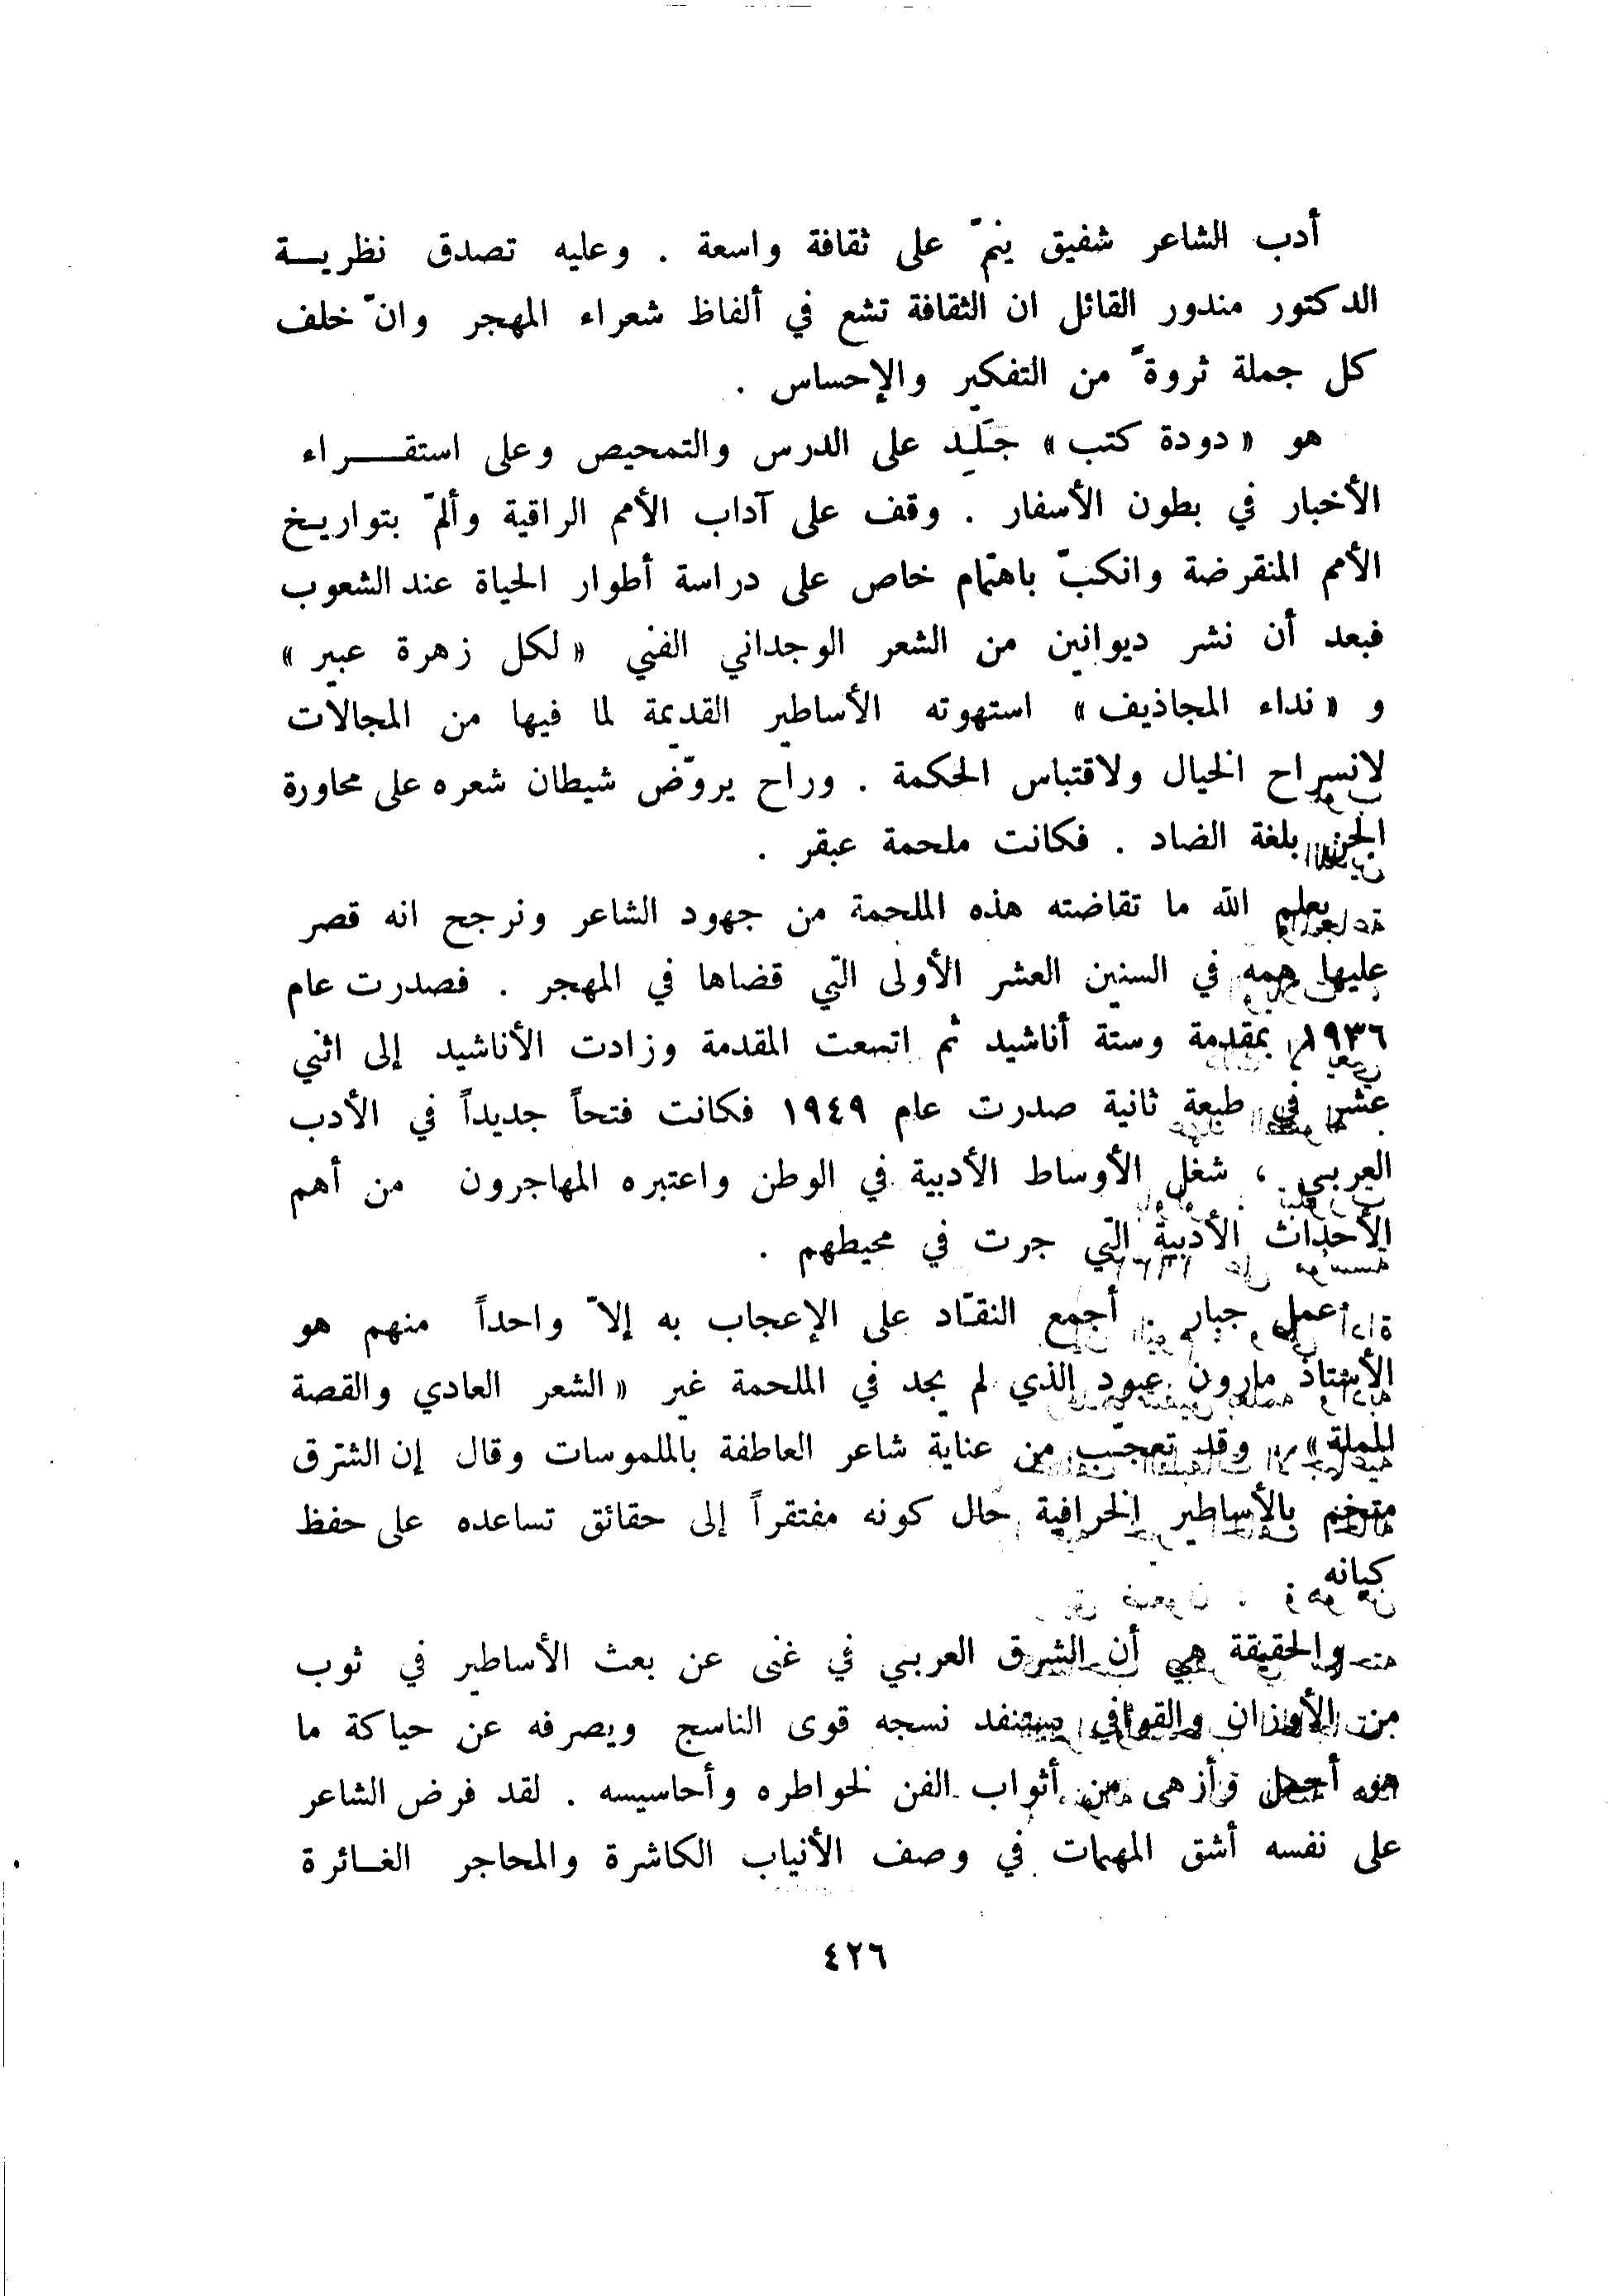 أدب الشاعر شفيق ينمّ على ثقافة واسعة . وعليه تصدق نظريـــة
الدكتور مندور القائل ان الثقافة تشع في ألفاظ شعراء المهجر وانّ خلف
كل جملة ثروةً من التفكير والإحساس .
هو « دودة كتب » جَلِيد على الدرس والتمحيص وعلى استقـــراء
الأخبار في بطون الأسفار . وقف على آداب الأمم الراقية وألمّ بتواريـخ
الأمم المنقرضة وانكبّ باهتمام خاص على دراسة أطوار الحياة عند الشعوب
فبعد أن نشر ديوانين من الشعر الوجداني الفني « لكل زهرة عبير »
و « نداء المجاذيف » استهوته الأساطير القديمة لما فيها من المجالات
لانسراح الخيال ولاقتباس الحكمة . وراح يروّض شيطان شعره على محاورة
الجن بلغة الضاد . فكانت ملحمة عبقر .
يعلم الله ما تقاضته هذه الملحمة من جهود الشاعر ونرجح انه قصر
عليها همه في السنين العشر الأولى التي قضاها في المهجر . فصدرت عام
١٩٣٦ بمقدمة وستة أناشيد ثم اتسعت المقدمة وزادت الأناشيد إلى اثني
عشر في طبعة ثانية صدرت عام ١٩٤٩ فكانت فتحاً جديداً في الأدب
العربي ، شغل الأوساط الأدبية في الوطن واعتبره المهاجرون من أهم
الأحداث الأدبية التي جرت في محيطهم .
عمل جبار . أجمع النقّاد على الإعجاب به إلاّ واحداً منهم هو
الأستاذ مارون عبود الذي لم يجد في الملحمة غير « الشعر العادي والقصة
المملة » . وقد تعجّب من عناية شاعر العاطفة بالملموسات وقال إن الشرق
متخم بالأساطير الخرافية حال كونه مفتقراً إلى حقائق تساعده على حفظ
كيانه
والحقيقة هي أن الشرق العربي في غنى عن بعث الأساطير في ثوب
من الأوزان والقوافي يستنفد نسجه قوى الناسج ويصرفه عن حياكة ما
هو أجمل وأزهى من أثواب الفن لخواطره وأحاسيسه . لقد فرض الشاعر
على نفسه أشق المهمات في وصف الأنياب الكاشرة والمحاجر الغـائرة
٤٢٦